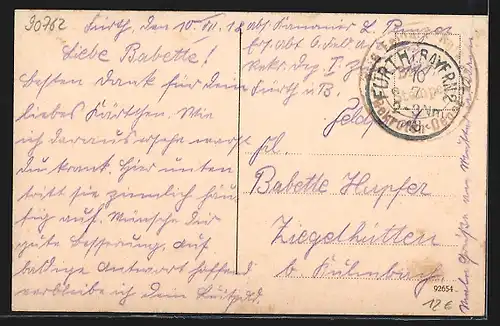 30762
Fürth, den 10. VII. 18
Liebe Babette!
besten Dank für dein
liebes Kärtchen. Wie
ich daraus ersehe warst
du krank. Hier unten
tritt sie ziemlich häu-
fig auf. Wünsche dir
gute Besserung. Auf
baldige Antwort hoffend
verbleibe ich dein
Abs. Kanonier L.
Ers. Abt. 6. Feld
Rekr. Dep. I.
Fürth i. B.
FÜRTH (BAYERN) 2
10
7
Rekruten-Depot
Frl.
Babette Hupfer
Ziegelhütten
b. Kulmbach
92654
12 €